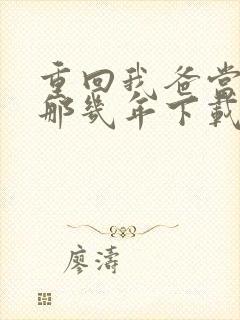 重回我爸当
那几年下载
廖涛